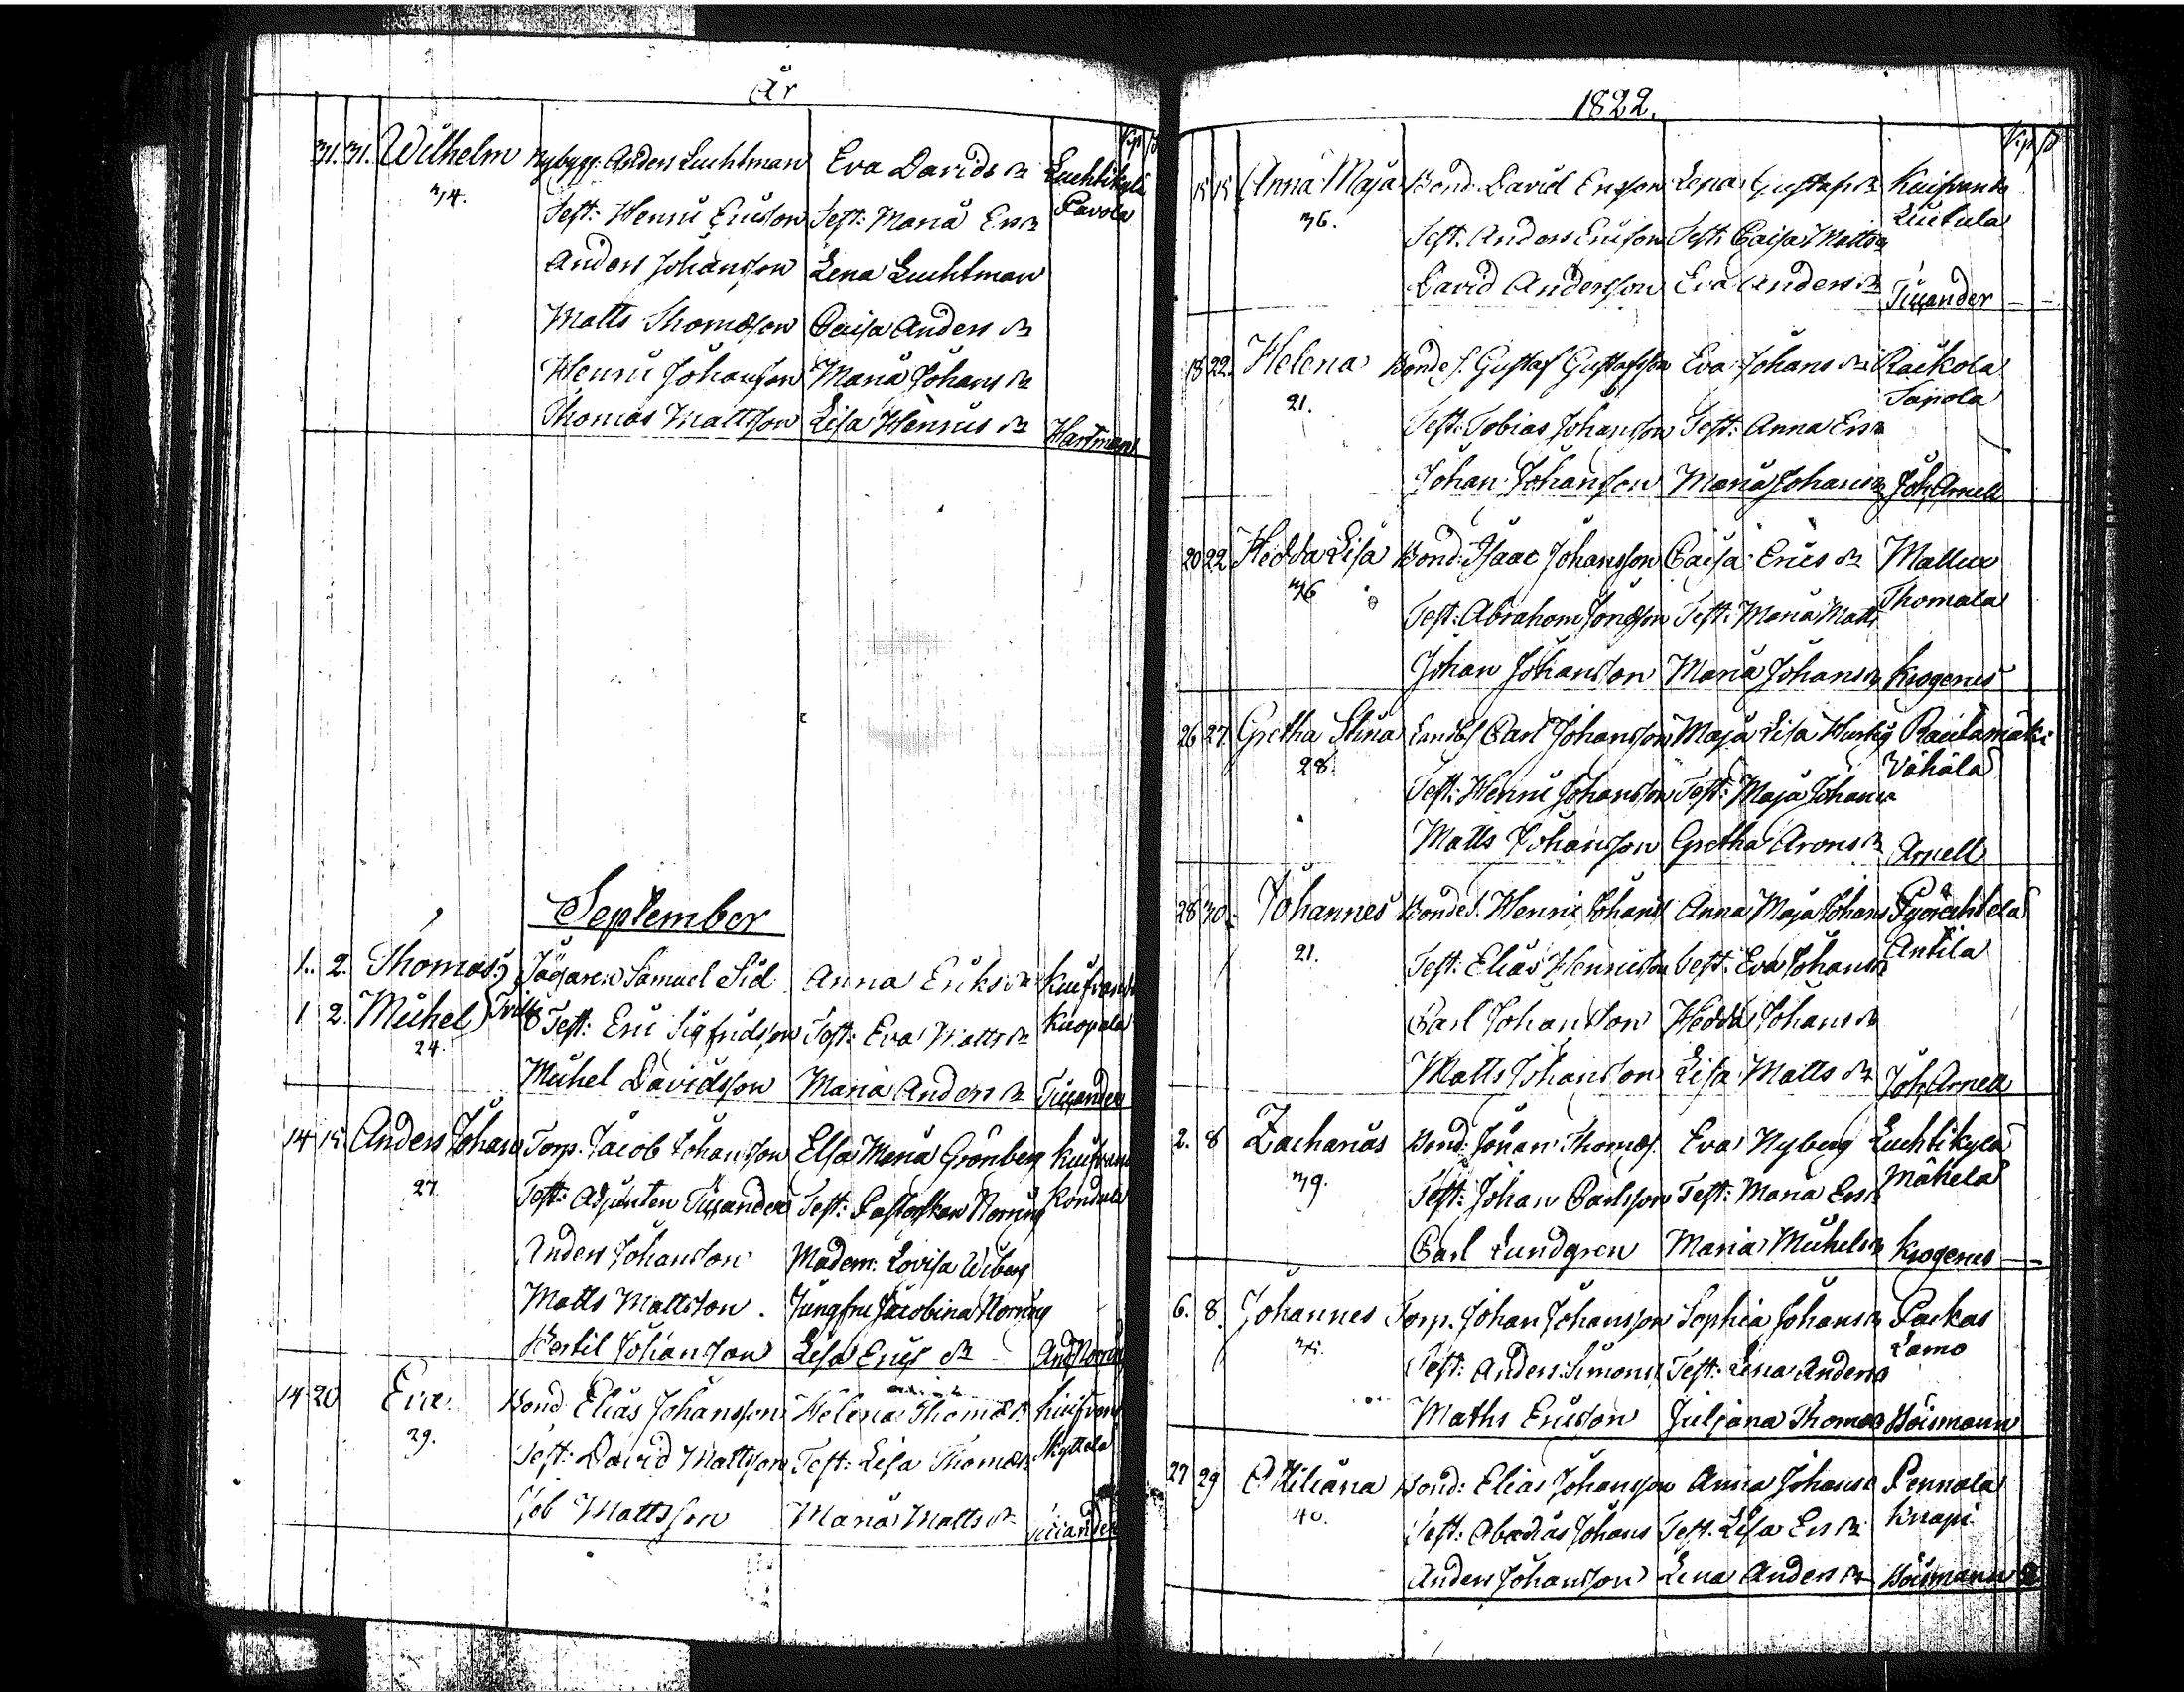 År
31. 31. Wilhelm Nybygg: Anders Luchtman Eva Davids dr Luchtikylä
34. Test: Henric Ericsson Test: Maria Ers dr Pavola
Anders Johansson Lena Luchtman
Matts Thomasson Caisa Anders dr
Henric Johansson Maria Johans dr
Thomas Mattsson Lisa Henrics dr Hartman
September
1. 2. Thomas Jägaren Samuel Sid Anna Eriks dr
1 2. Michel Test: Eric Sigfridsson Test: Eva Matts dr Kuopala
24.
Michel Davidsson Maria Anders dr Ticcander
14 15. Anders Johan Torp. Jacob Johansson Elsa Maria Grönberg
27 Test: Adjuncten Ticcander Test: Pastorskan Norring
Anders Johansson Madem: Lovisa Wiberg
Matts Mattsson. Jungfru Jacobina Norring
Bertil Johansson Lisa Erics dr And Norring
14 20 Eva Bond Elias Johansson Helena Thomæ dr
29. Test: David Mattsson Test: Lisa Thomæ dr Kyttälä
Job Mattsson Maria Matts dr
1822.
15 15 Anna Maja Bond: David Ericsson Lena Gustafs dr
36. Test. Anders Ericsson Test: Caisa Matts dr
David Andersson Eva Anders dr Ticcander
18 22. Helena Bonde S. Gustaf Gustafsson Eva Johans dr Raikola
21. Tapola
Test: Tobias Johansson Test: Anna Ers dr
Johan Johansson Maria Johans dr Joh. Arnell
20 22 Hedda Lisa Bond: Isaac Johansson Caisa Erics dr Mallux
36 Test: Abraham Jonasson Test: Maria Matts Thomala
Johan Johansson Maria Johans dr Krogerus
26 27. Gretha Stina Carl Johansson Maja Lisa Rautamäki
28. Vähälä
Test: Henric Johansson Test: Maja Johans
Matts Johansson Gretha Arons dr Arnell
28 30. Johannes Bonde S. Henric Johans Anna Maja Johans
21. Test: Elias Henricsson Test: Eva Johans dr Antila
Carl Johansson Hedda Johans dr
Matts Johansson Lisa Matts dr Joh. Arnell
2. 8 Zacharias Bond: Johan Thomas. Eva Nyberg Luchtikylä
39. Test: Johan Carlsson Test: Maria Ers dr Mäkelä
Carl Lundgren Maria Michels dr Krogerus
6. 8. Johannes Torp. Johan Johansson Sophia Johans dr Packas
Lamo
Test: Anders Simons Test: Lena Anders
Maths Ericsson Juliana Thomas Hoismann
27 29 Ottiliana Bond: Elias Johansson Anna Johans Pennala
40. Test: Abadias Johans Test. Lisa Ers dr Knapi
Anders Johansson Lena Anders dr Hoismann